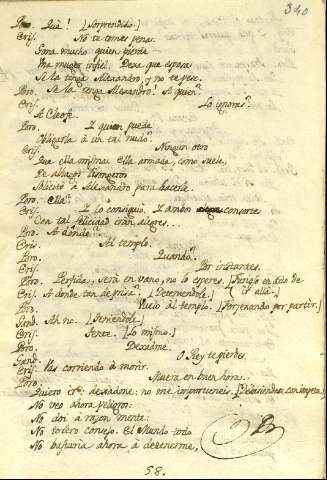 340
Poro. Qué! [Sorprendido.]
Eris. No te tomes pena.
Gana mucho quien pierde
Una muger infiel. Dexa que esposa
Se la tenga Alexandro, y no te pese.
Poro. Se la tenga Alexandro! A quien?
Eris. Lo ignoras?
A Cleofe.
Poro. Y quien puede
Obligarla á un tal nudo?
Eris. Ningun otro
Que ella misma. Ella armada, como suele,
De alhagos lisongeros
Solicitó á Alexandro para hacerla.
Poro. Ella?
Eris. Y lo consiguió. Y ambos consortes
Con tal felicidad eran alegres...
Poro. A dónde?
Eris. Al templo.
Poro. Quando?
Eris. Por instantes.
Poro. Pérfida, será en vano, no lo esperes. [Furioso en ademán de ir allá.]
Eris. A donde tan de prisa? [Deteniendole.]
Poro. Vuelo al templo. [Forzejando por partir.]
Gand. Ah no. [Temiendole.]
Eris. Tente. [Lo mismo.]
Poro. Dexadme.
Gand. O Rey te pierdes.
Eris. Vas corriendo á morir.
Poro. Muera en buen hora.
Quiero ir: dexadme: no me importuneis. [Desasiendose con impetu.]
No veo ahora peligros:
No doi á razon mente:
No tolero consejo. El Mundo todo
No bastaria ahora á detenerme,
58.